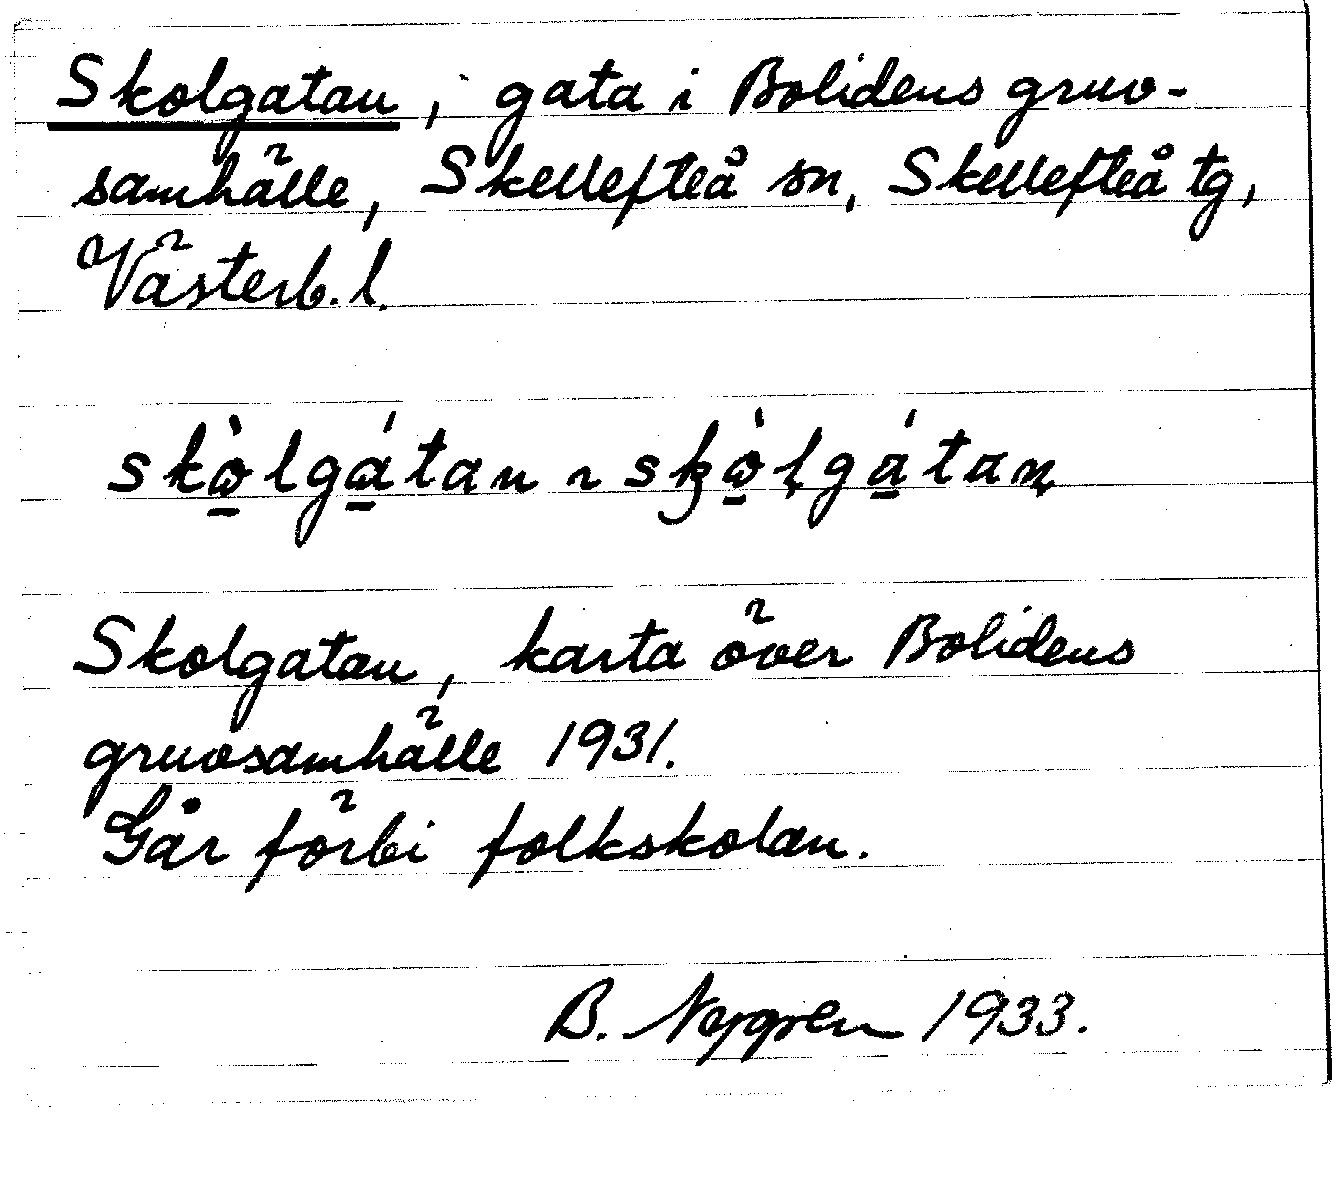 Skolgatan, gata i Bolidens gruv-
samhälle, Skellefteå sn, Skellefteå tg,
Västerb. l.
skò̱lgá̱tan ~ skò̱lgá̱tan
Skolgatan, karta över Bolidens
gruvsamhälle 1931.
Går förbi folkskolan.
B. Nygren 1933.